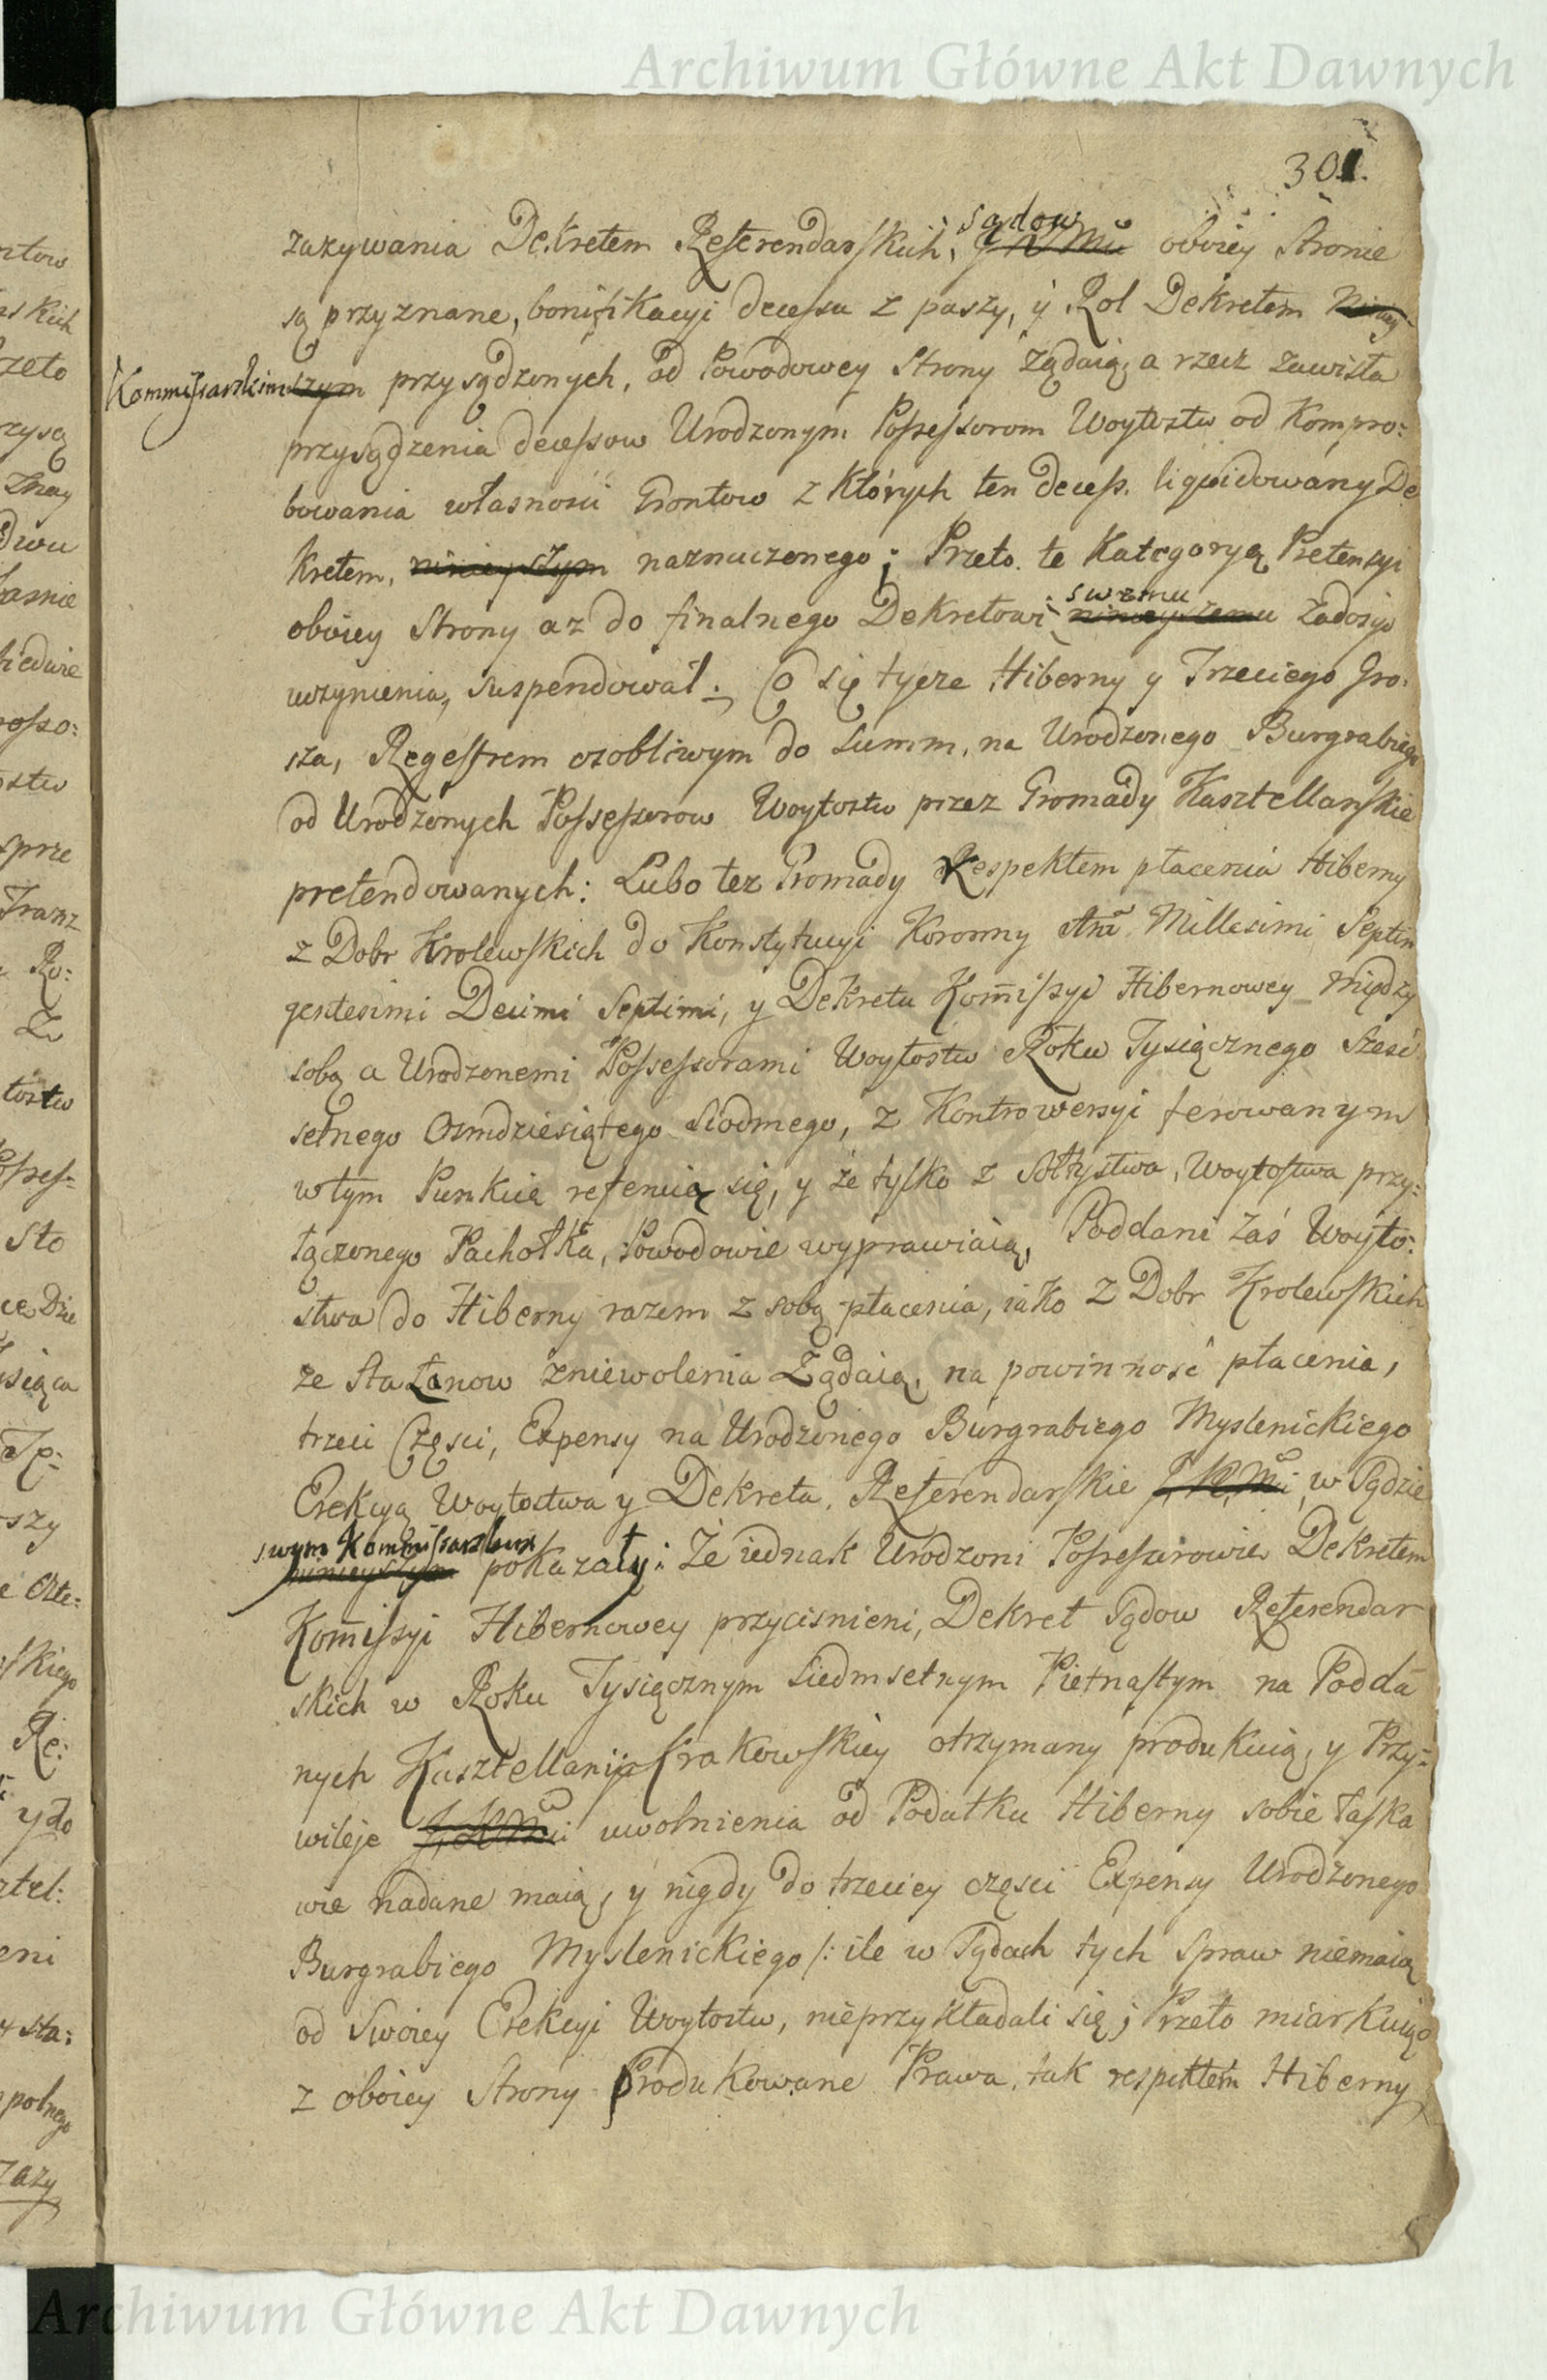 Archiwum Główne Akt Dawnych
301.
sądow
zazywania Dekretem Referendarskich, J K Mci oboiey Stronie
są przyznane, bonifikacyi decessu z paszy, y Rol Dekretem niniey
Kommissarskim szym przysądzonych, od Powodowey Strony żądaią; a rzecz zawisła
przysądzenia decessow Urodzonym Possessorom Woytostw od Kompro:
bowania własnosci Grontow z Których ten decess. liquidowany De
kretem, ninieyszym naznaczonego; Przeto te Kategoryą Pretensyi
swemu
oboiey Strony az do finalnego Dekretowi ninieyszemu Zadosyc
uczynienia, suspendował. Co się tycze Hiberny y Trzeciego Gro:
sza, Regestrem osobliwym do Summ, na Urodzonego Burgrabiego
od Urodzonych Possessorow Woytostw przez Gromady Kasztellanskie
pretendowanych: Lubo tez Gromady Respektem płacenia Hiberny
z Dobr Krolewskich do Konstytucyi Koronny Millesimi Septin
gentesimi Decimi Septimi, y Dekretu Kom̃issyi Hibernowey między
sobą a Urodzonemi Possessorami Woytostw Roku Tysiącznego Szesc
setnego Osmdziesiątego Siodmego, z Kontrowersyi ferowanym
w tym Punkcie referuią się, y że tylko z Sołtystwa, Woytostwa przy:
łączonego Pachołka, Powodowie wyprawiaią, Poddani zaś Woyto:
stwa do Hiberny razem z sobą płacenia, iako z Dobr Krolewskich
ze Sta Łanow zniewolenia Żądaią, na powinność płacenia,
trzeci Częsci, Expensy na Urodzonego Burgrabiego Myslenickiego
Erekcyą Woytostwa y Dekreta, Referendarskie J. K. Mci, w Sądzie
swym Kommissarskim
ninieyszym pokazały: Że iednak Urodzoni Possessorowie Dekretem
Kom̃issyi Hibernowey przycisnieni, Dekret Sądow Referendar
skich w Roku Tysiącznym Siedmsetnym Pietnastym na Podda
nych Kasztellanij Krakowskiey otrzymany produkuią, y Przy:
wileje J. K. Mci uwolnienia od Podatku Hiberny sobie łaska
wie nadane maią, y nigdy do trzeciey częsci Expensy Urodzonego
Burgrabiego Myslenickiego /: ile w Sądach tych Spraw niemaią
od Swoiey Erekcyi Woytostw, nieprzykładali się; Przeto miarkuiąc
z oboiey Strony Produkowane Prawa, tak respektem Hiberny
Archiwum Główne Akt Dawnych